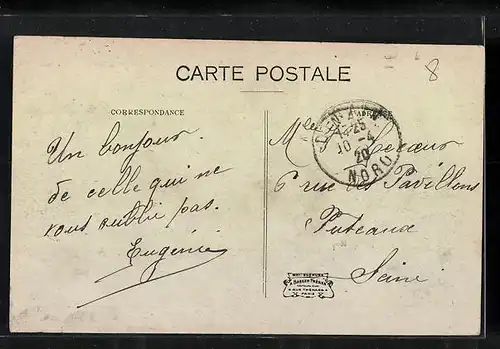 8
CARTE POSTALE
CORRESPONDANCE
Un bonjour
de celle qui ne
vous oublie pas.
Eugénie
Mlle Lecoeur
6 rue des Pavillons
Puteaux
Seine
10 -4
20
NORD
PARIS